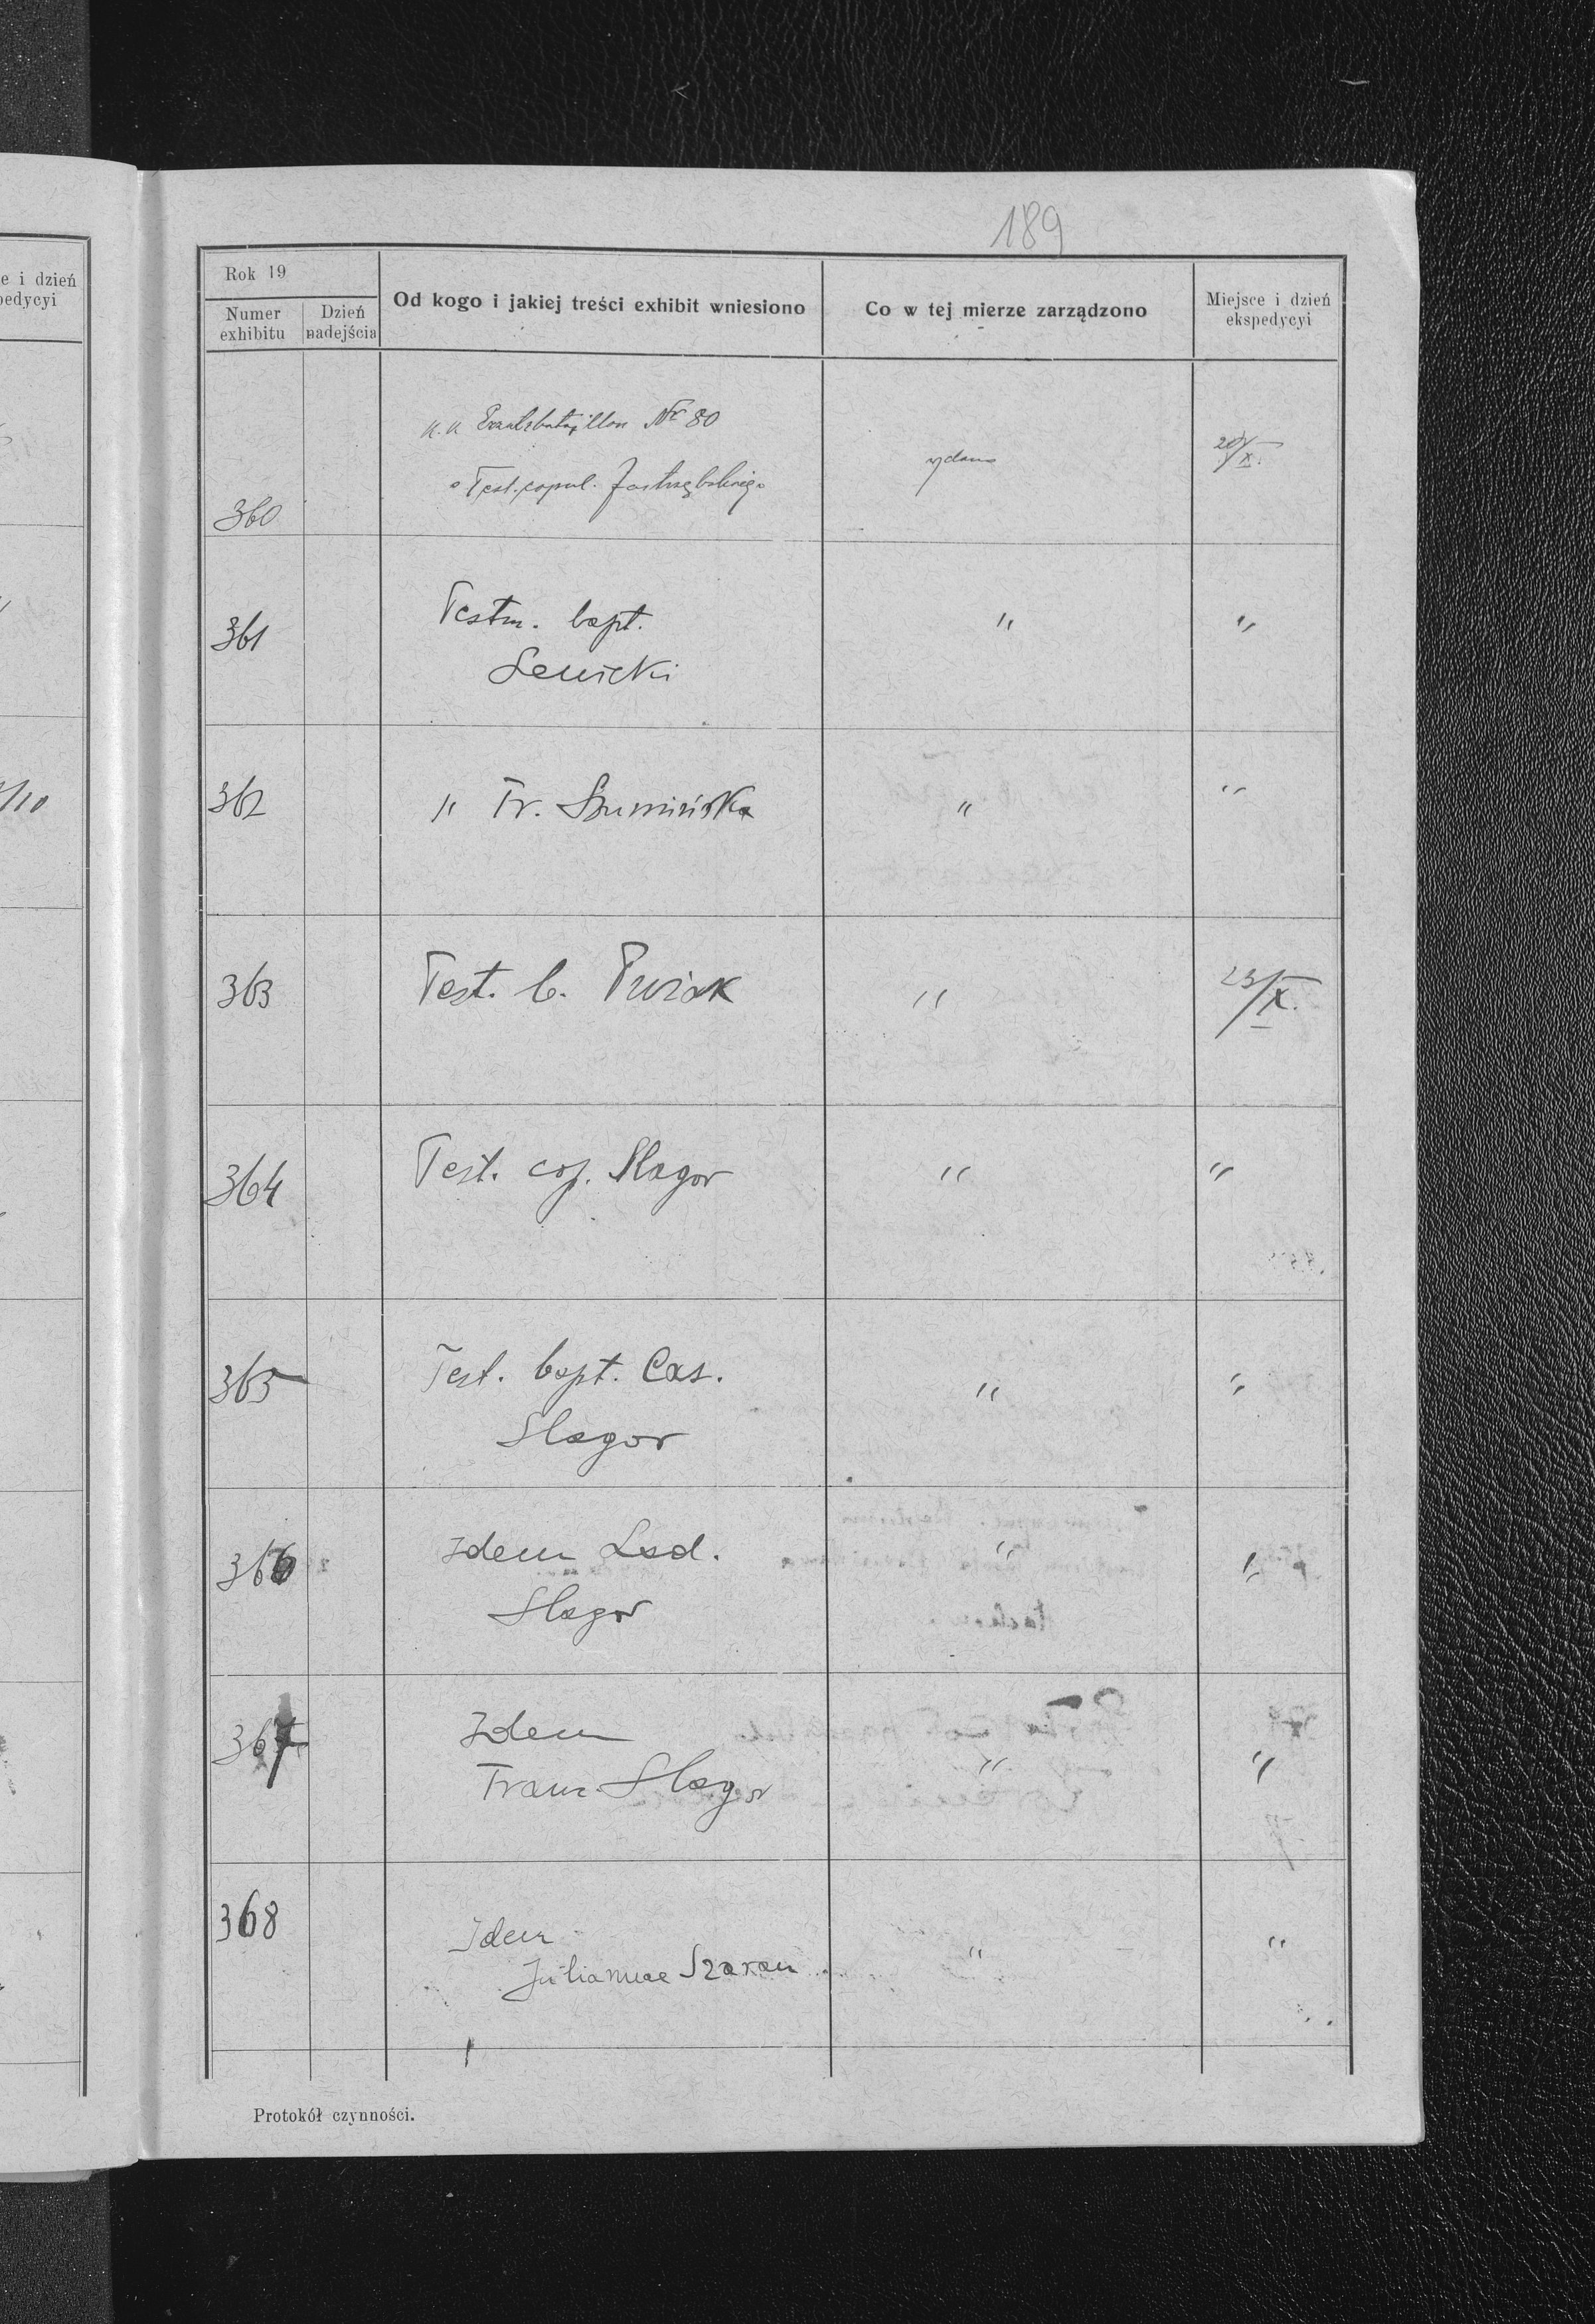 189
e i dzień
pedycyi
/10
Rok 19
Numer exhibitu
Dzień nadejścia
Od kogo i jakiej treści exhibit wniesiono
Co w tej mierze zarządzono
Miejsce i dzień ekspedycyi
K. K. Ersatzbataillon Nr 80
o Test. copul. Jastrzębskiego
360
ydano
20/X.
361
Testm. bapt.
Senicki
"
"
362
" Fr. Szumińska
"
"
363
Test. b. Pwiak
"
23/X.
364
Test. cop. Slagor
"
"
365
Test. bapt. Cas.
Slagor
"
"
366
Idem Lad.
Slagor
"
"
367
Idem
Franc. Slagor
"
"
368
Idem
Juliannae Szaran
"
"
Protokół czynności.